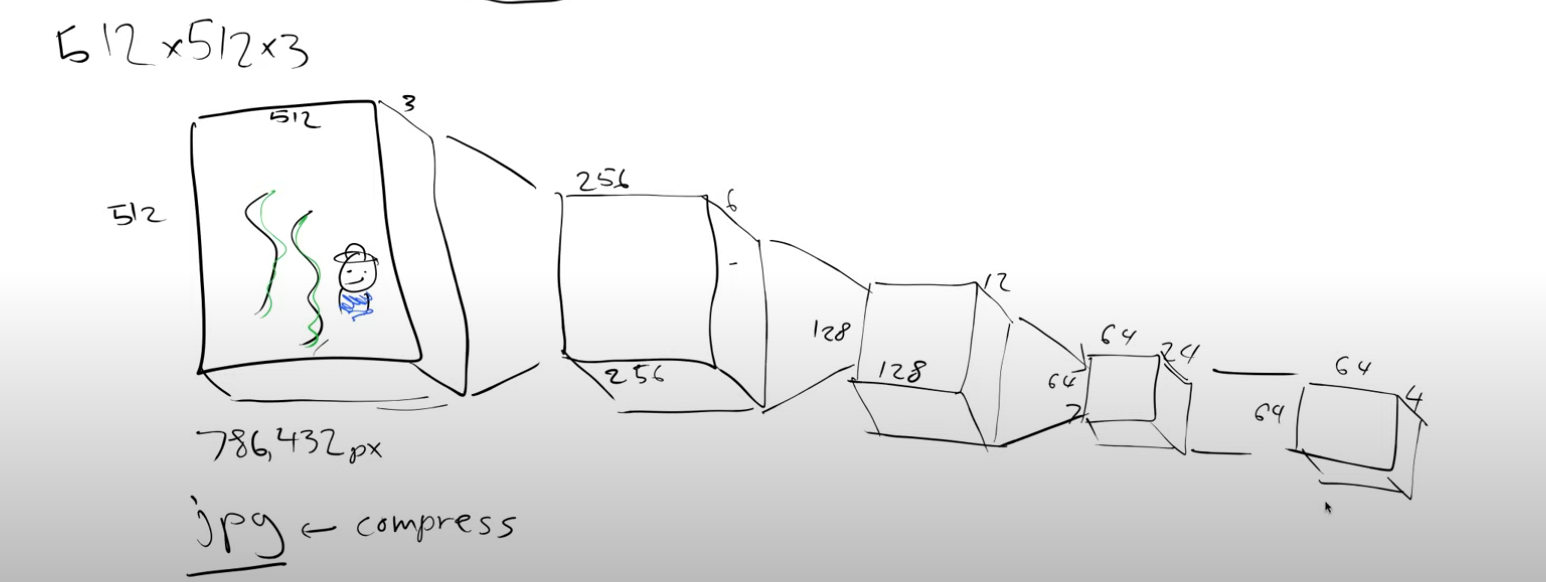 512×512×3
3
512
512
256
6
256
12
128
128
64
24
64
64
4
64
786,432px
jpg ← compress